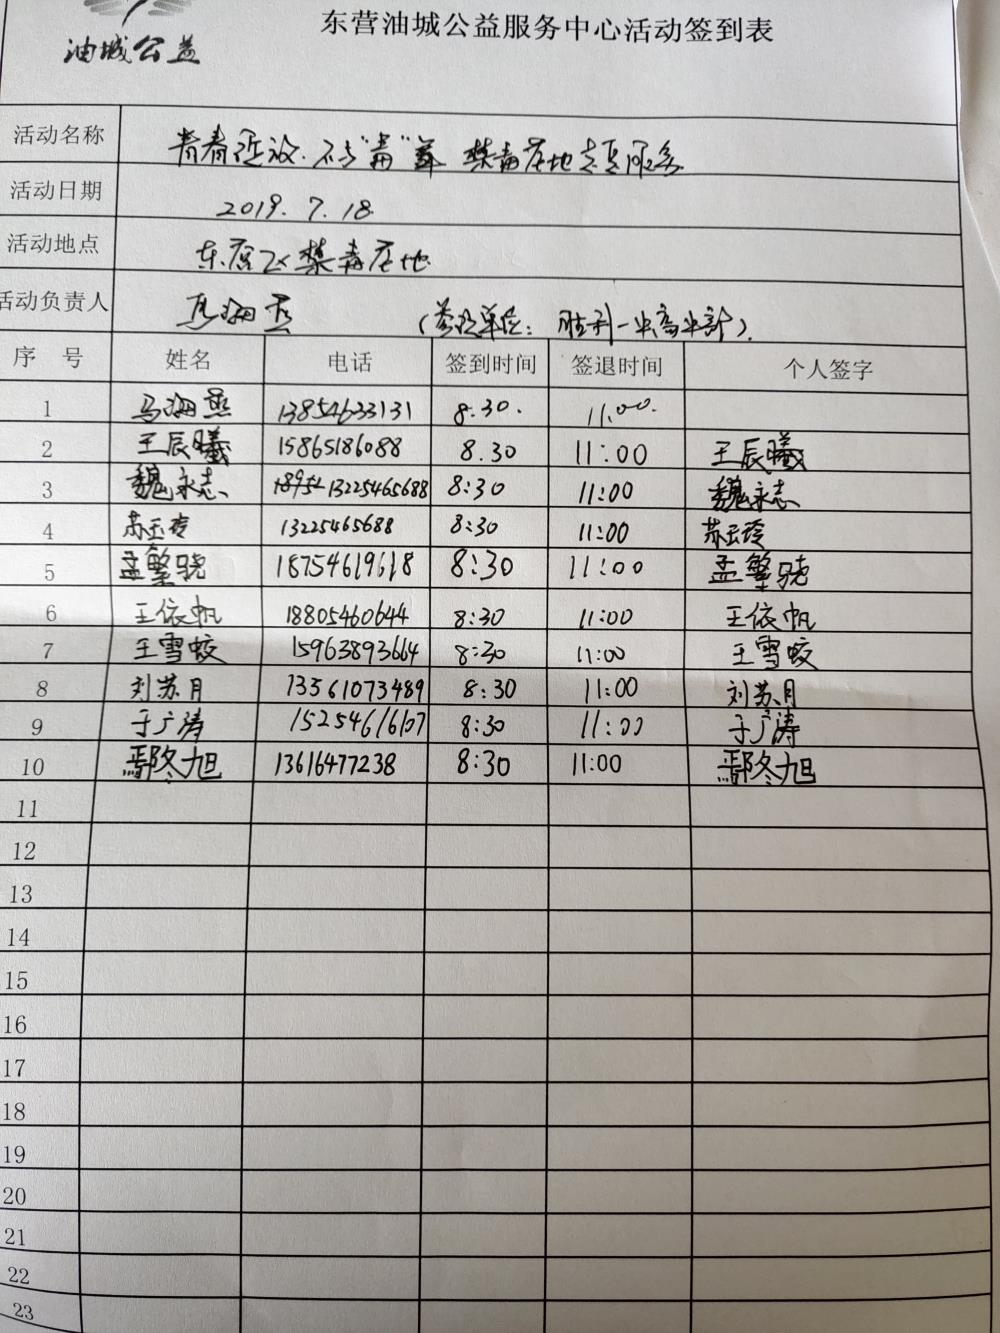 油城公益
东营油城公益服务中心活动签到表
活动名称 青春绽放.不与"毒"舞 禁毒基地志愿服务
活动日期 2019.7.18
活动地点 东营区禁毒基地
活动负责人 马海燕 (参与单位: 胜利一中高中部)
序 号 姓名 电话 签到时间 签退时间 个人签字
1 马海燕 13854633131 8:30. 11:00.
2 王辰曦 15865186088 8.30 11:00 王辰曦
3 魏永志 13225465688 8:30 11:00 魏永志
4 苏玉玲 13225465688 8:30 11:00 苏玉玲
5 孟繁骁 18754619618 8:30 11:00 孟繁骁
6 王依帆 18805460644 8:30 11:00 王依帆
7 王雪蛟 15963893664 8:30 11:00 王雪蛟
8 刘苏月 13561073489 8:30 11:00 刘苏月
9 于广涛 15254616107 8:30 11:00 于广涛
10 鄢冬旭 13616477238 8:30 11:00 鄢冬旭
11
12
13
14
15
16
17
18
19
20
21
22
23